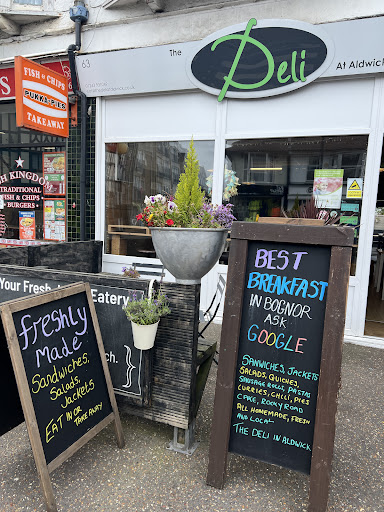 FISH & CHIPS
PUKKA-PIES
TAKEAWAY
H KINGDO
TRADITIONAL
FISH & CHIPS
BURGERS
63
The
Deli
At Aldwick
Your Fresh
Eatery
ch.
freshly
Made
Sandwiches,
Salads,
Jackets
EAT IN OR
TAKE AWAY
BEST
BREAKFAST
IN BOGNOR
ASK
GOOGLE
SANWICHES, JACKETS
SALADS, QUICHES,
SAUSAGE ROLLS, PASTAS
CURRIES, CHILLI, PIES
CAKE, ROCKY ROAD
ALL HOMEMADE, FRESH
AND LOCAL
THE DELI IN ALDWICK